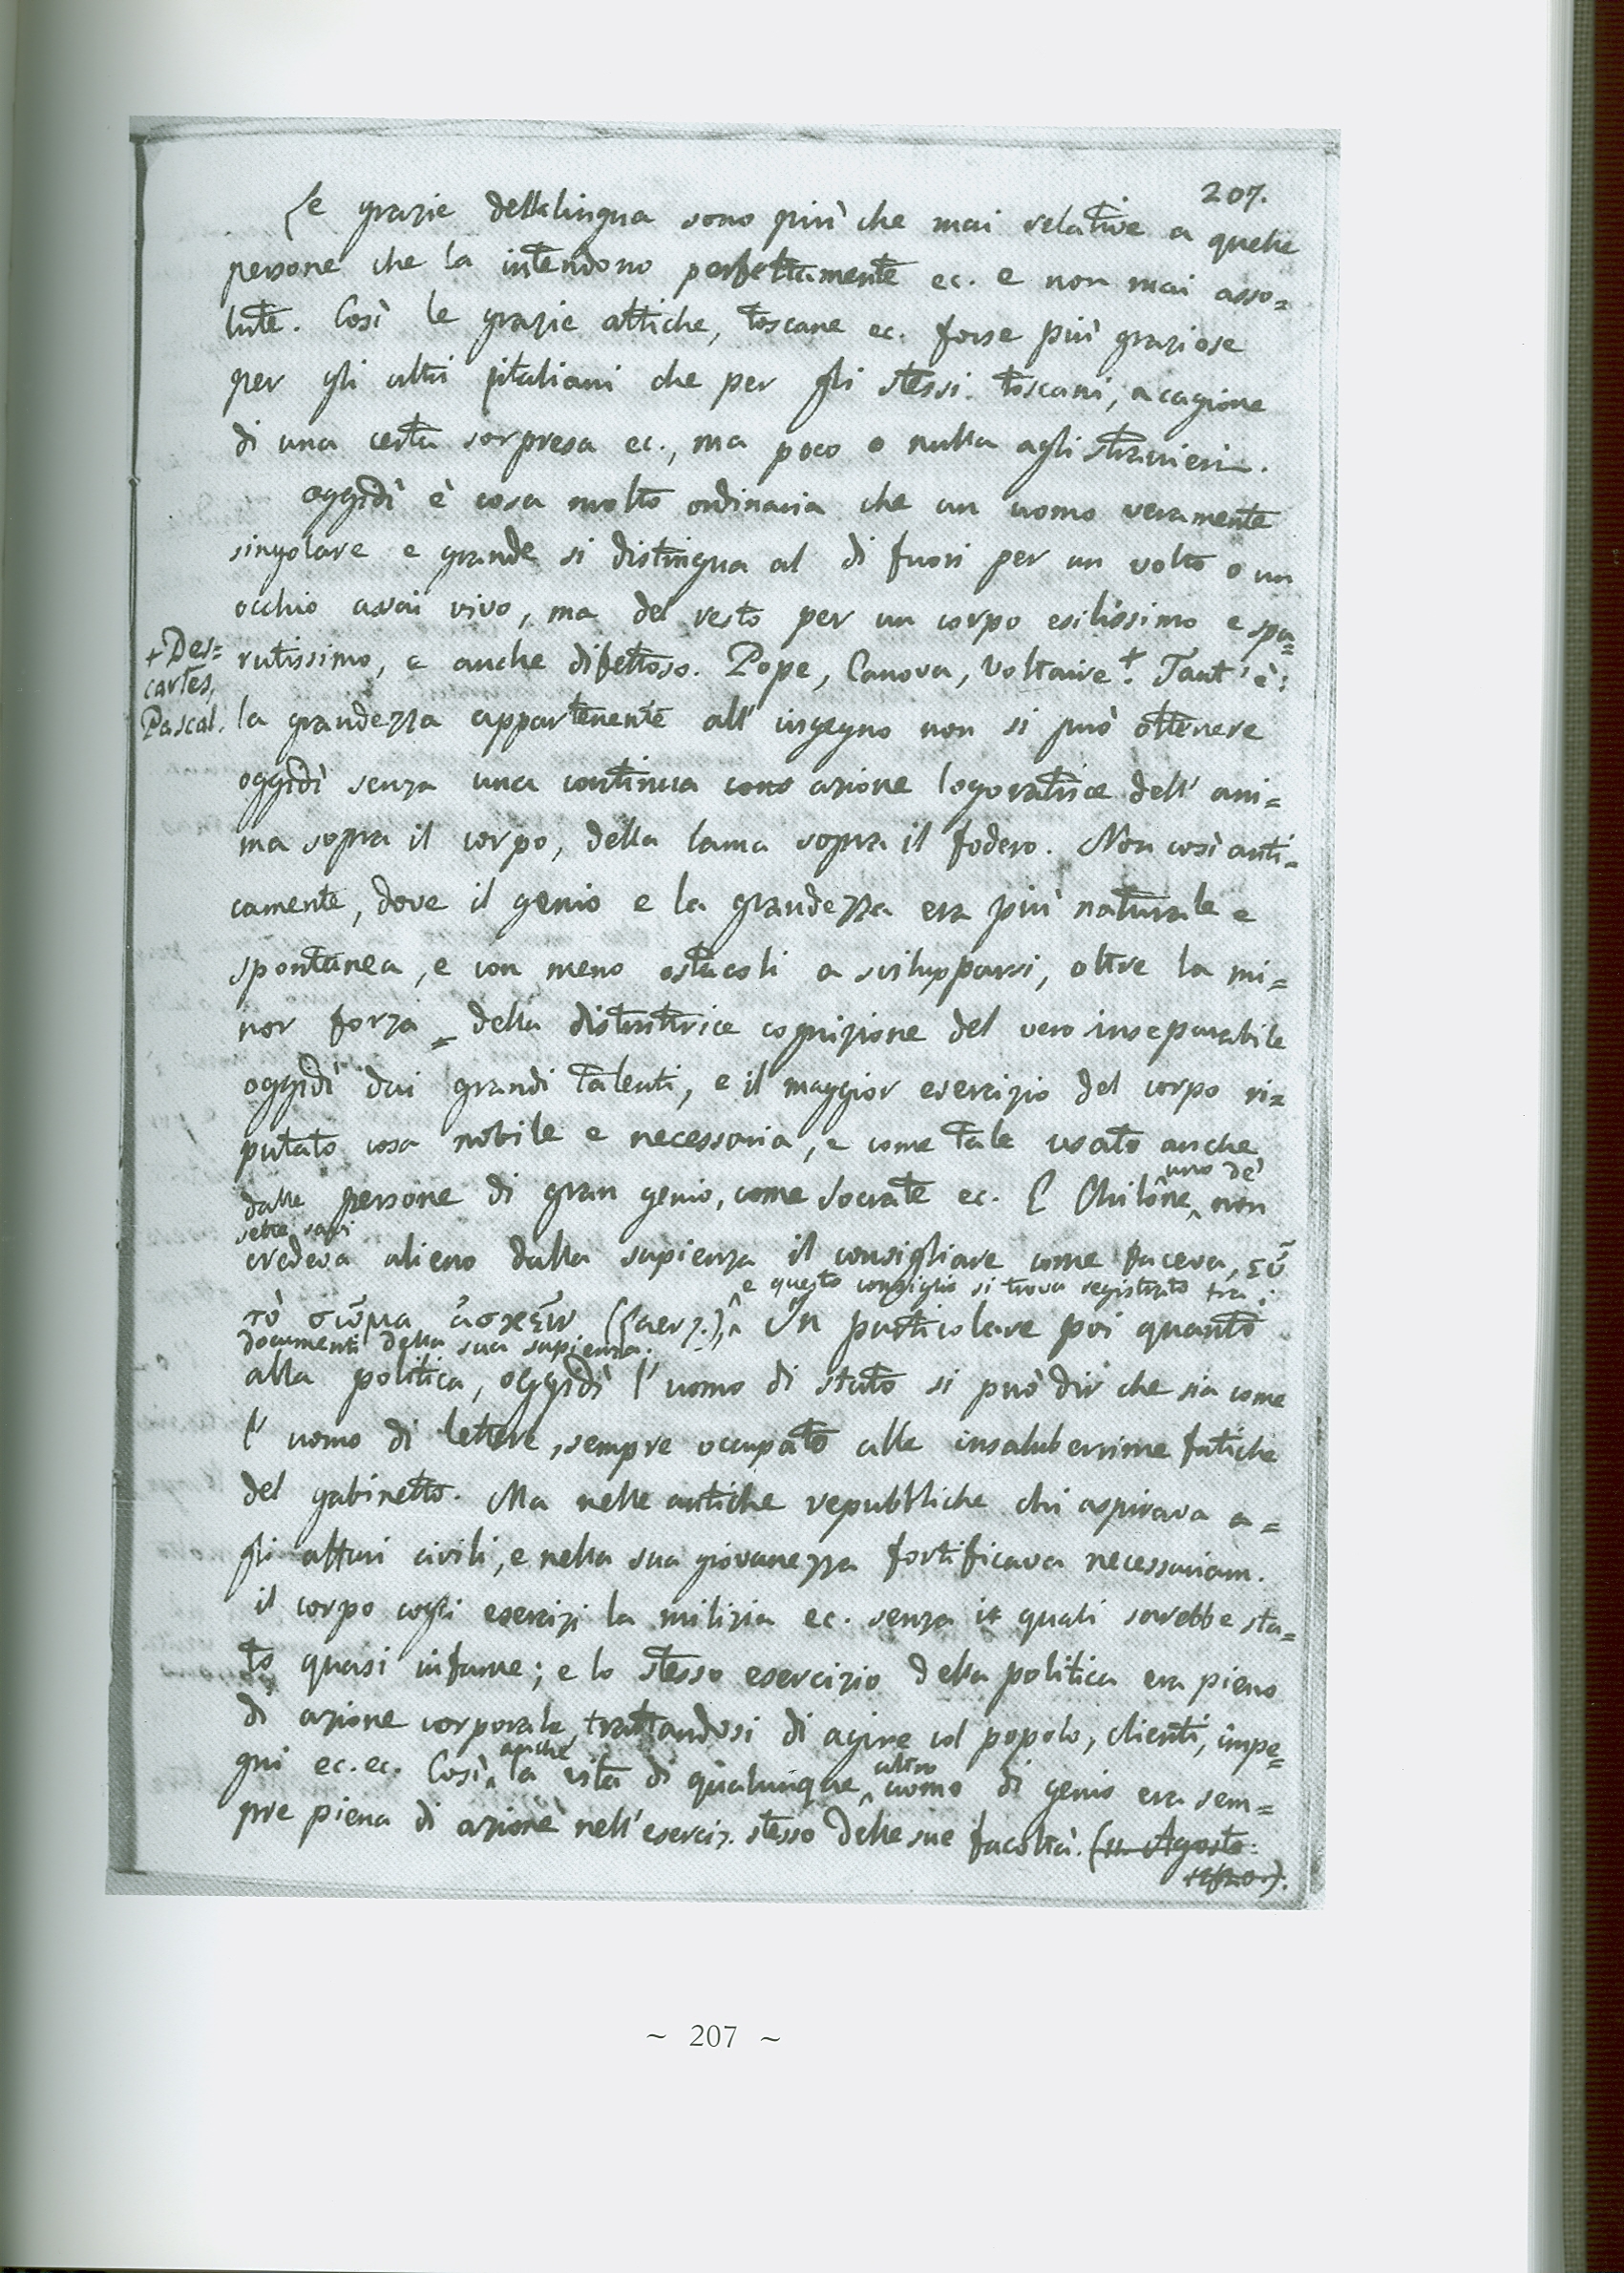 207.
Le grazie della lingua sono più che mai relative a quelle
persone che la intendono perfettamente ec. e non mai asso=
lute. Così le grazie attiche, toscane ec. forse più graziose
per gli altri italiani che per gli stessi toscani, a cagione
di una certa sorpresa ec., ma poco o nulla agli stranieri.
Oggidì è cosa molto ordinaria che un uomo veramente
singolare e grande si distingua al di fuori per un volto o un
occhio assai vivo, ma del resto per un corpo esilissimo e spa=
rutissimo, e anche difettoso. Pope, Canova, Voltaire +. Tant'è:
+ Des=
cartes,
Pascal.
la grandezza appartenente all'ingegno non si può ottenere
oggidì senza una continua azione logoratrice dell'ani=
ma sopra il corpo, della lama sopra il fodero. Non così anti=
camente, dove il genio e la grandezza era più naturale e
spontanea, e con meno ostacoli a svilupparsi, oltre la mi=
nor forza = della distruttrice cognizione del vero inseparabile
oggidì dai grandi talenti, e il maggior esercizio del corpo ri=
putato cosa nobile e necessaria, e come tale usato anche
dalle persone di gran genio, come Socrate ec. E Chilone uno de'
sette savi non
credeva alieno dalla sapienza il consigliare come faceva, εὖ
τὸ σῶμα ἀσκεῖν (Laerz.), e questo consiglio si trova registrato tra i
documenti della sua sapienza. In particolare poi quanto
alla politica, oggidì l'uomo di stato si può dir che sia come
l'uomo di lettere, sempre occupato alle insaluberrime fatiche
del gabinetto. Ma nelle antiche repubbliche chi aspirava a=
gli affari civili, e nella sua giovanezza fortificava necessariam.
il corpo cogli esercizi la milizia ec. senza i quali sarebbe sta=
to quasi infame; e lo stesso esercizio della politica era pieno
di azione corporale, trattandosi di agire col popolo, clienti, impe=
gni ec. ec. Così anche la vita di qualunque altro uomo di genio era sem=
pre piena di azione nell'eserciz. stesso delle sue facoltà. (11. Agosto
1820.).
~ 207 ~